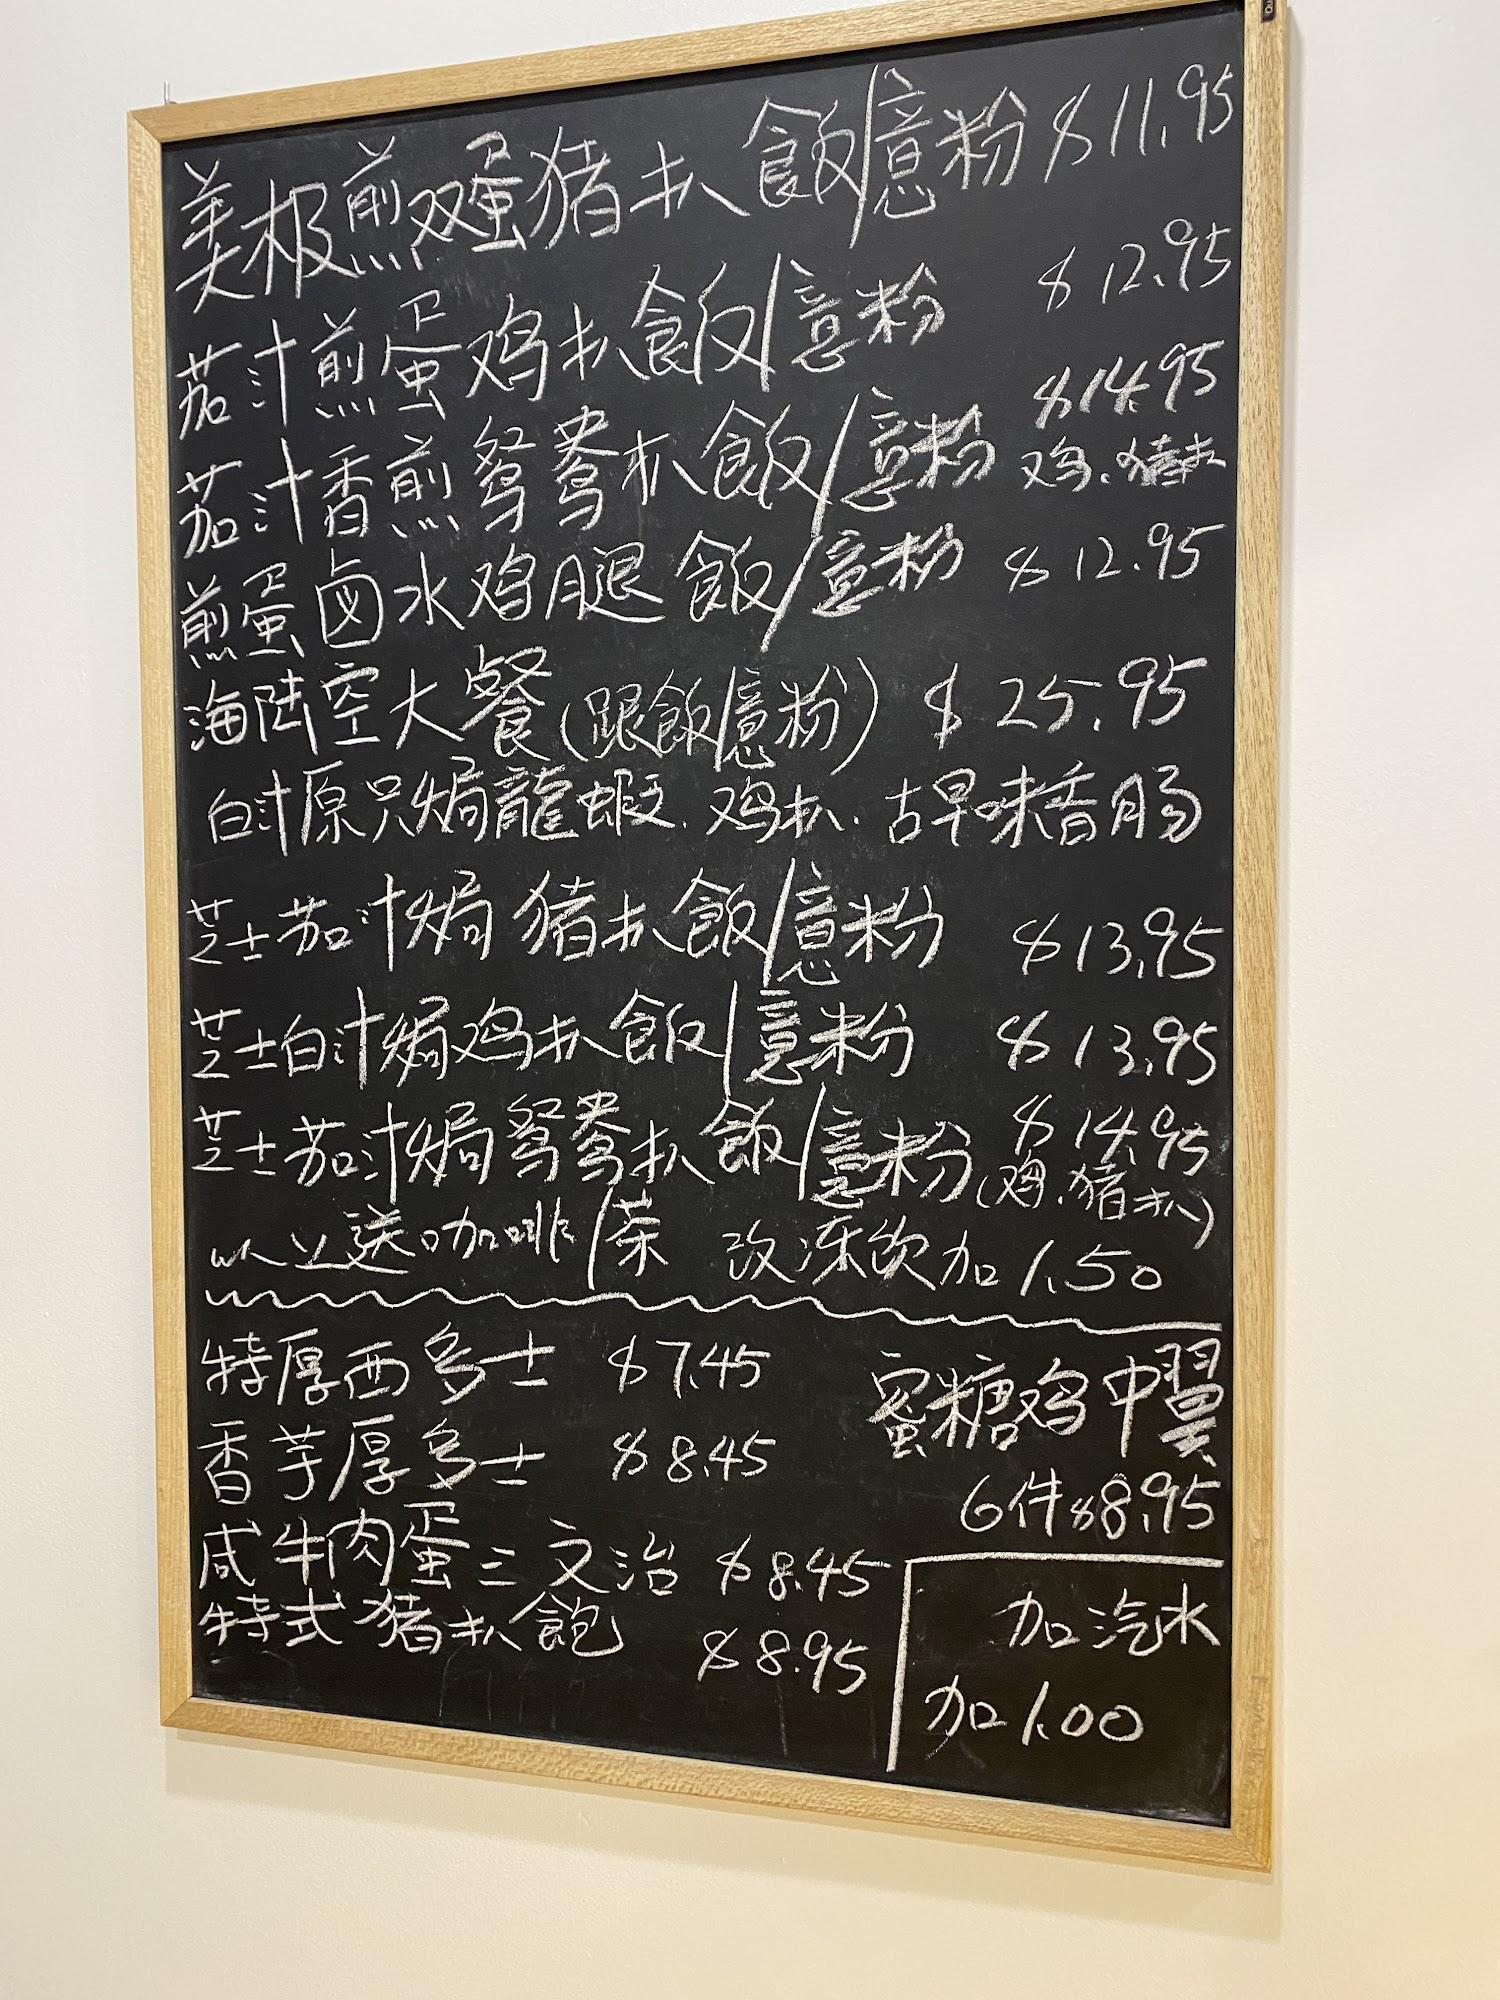 美极煎双蛋猪扒飯/意粉 $11.95
茄汁煎蛋鸡扒飯/意粉 $12.95
茄汁香煎鸳鸯扒飯/意粉 $14.95
鸡、猪扒
煎蛋卤水鸡腿飯/意粉 $12.95
海陆空大餐(跟飯/意粉) $25.95
白汁原只焗龍蝦、鸡扒、古早味香肠
芝士茄汁焗猪扒飯/意粉 $13.95
芝士白汁焗鸡扒飯/意粉 $13.95
芝士茄汁焗鸳鸯扒飯/意粉 $14.95
(鸡、猪扒)
以上送咖啡/茶 改冻饮加1.50
特厚西多士 $7.45
香芋厚多士 $8.45
咸牛肉蛋三文治 $8.45
特式猪扒飽 $8.95
蜜糖鸡中翼
6件$8.95
加汽水
加1.00